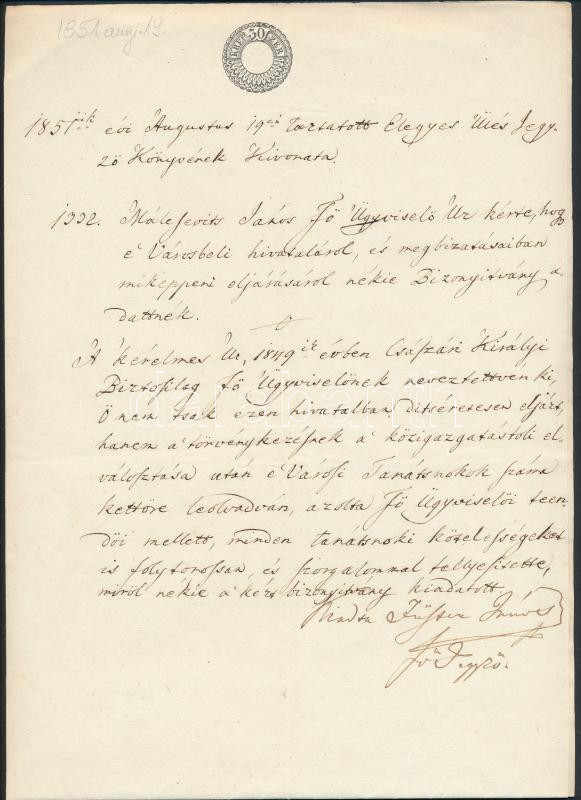 1851 aug. 19.
30
1851ik évi Augustus 19én Tartatott Elegyes Ülés Jegy-
ző Könyvének Kivonata.
1332. Málesevits János Fő Ügyviselő Úr kérte, hogy
e' Városbeli hivataláról, és megbizatásaiban
miképpeni eljárásáról nékie Bizonyitvány a-
dattnék.
A' kérelmes Úr, 1849ik évben Császári Királyi
Biztosilag Fő Ügyviselőnek neveztettvén ki,
Ő nem tsak ezen hivatalban ditséretesen eljárt,
hanem a' törvénykezésnek a' közigazgatástóli el-
választása után e' Városi Tanátsnokok száma
kettőre leolvadván, azolta Fő Ügyviselői teen-
dői mellett, minden tanátsnoki kötelességeket
is folytonossan, és szorgalommal tellyesitette,
miről nékie a' kért bizonyitvány kiadatott.
Kiadta János
Fő Jegyző.